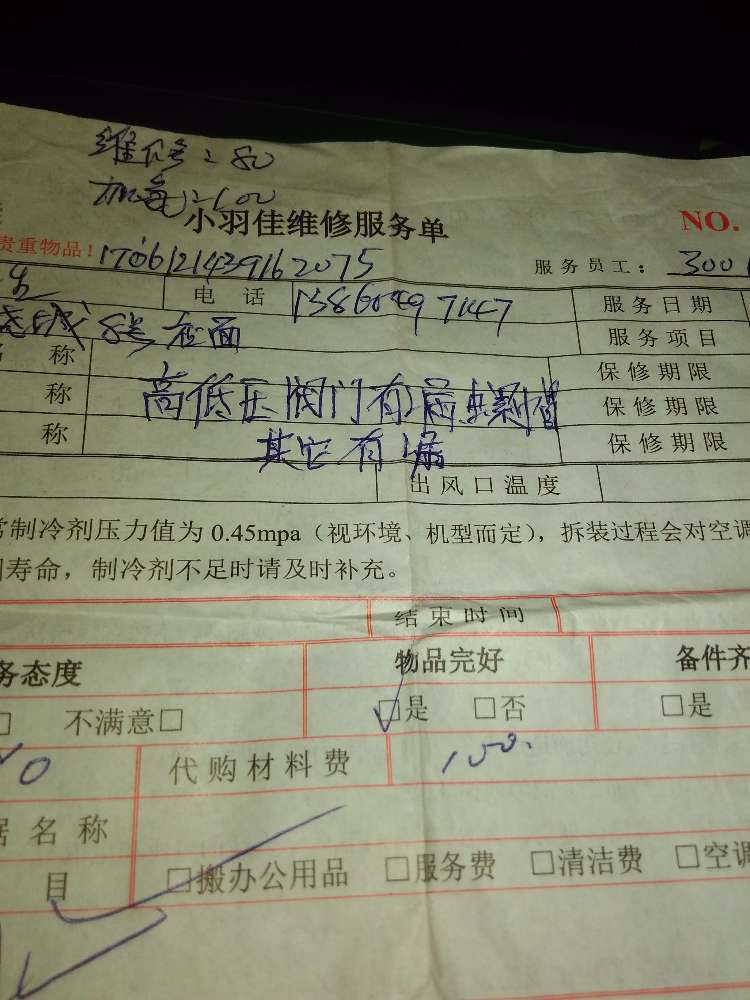 维修：80
加氟：100
小羽佳维修服务单
NO.
贵重物品！
170612143916 2075
服务员工：
300
电 话
服务日期
服务项目
称
保修期限
称
高低压阀门有漏
保修期限
称
其它有漏
保修期限
出风口温度
常制冷剂压力值为 0.45mpa（视环境、机型而定），拆装过程会对空调
寿命，制冷剂不足时请及时补充。
结束时间
务态度
物品完好
备件齐
不满意□
□是 □否
□是
代购材料费
100.
据名称
目
□搬办公用品 □服务费 □清洁费 □空调